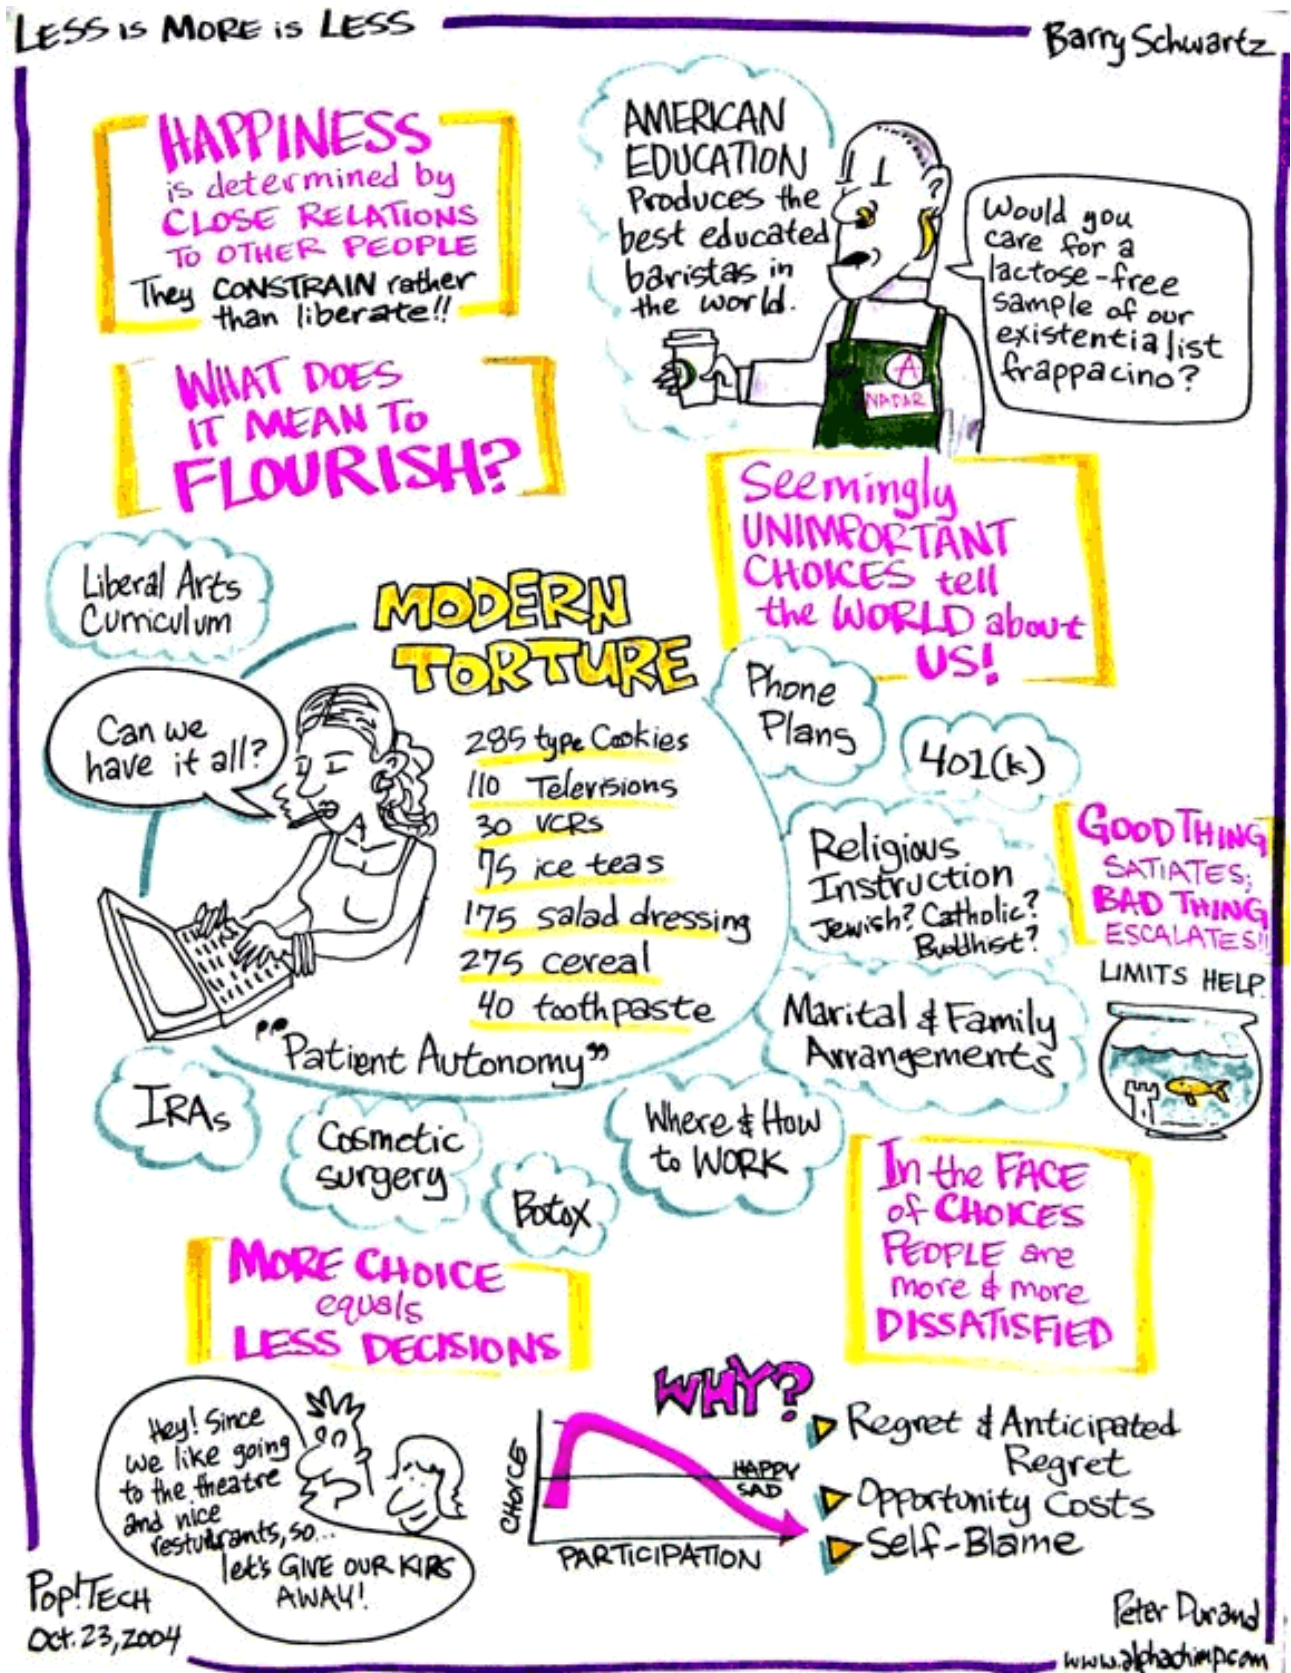 LESS is MORE is LESS
Barry Schwartz
HAPPINESS
is determined by
CLOSE RELATIONS
TO OTHER PEOPLE
They CONSTRAIN rather
than liberate!!
AMERICAN
EDUCATION
Produces the
best educated
baristas in
the world.
Would you
care for a
lactose-free
sample of our
existentialist
frappacino?
A
NADAR
WHAT DOES
IT MEAN TO
FLOURISH?
Seemingly
UNIMPORTANT
CHOICES tell
the WORLD about
US!
Liberal Arts
Curriculum
Can we
have it all?
MODERN
TORTURE
285 type Cookies
110 Televisions
30 VCRs
75 ice teas
175 salad dressing
275 cereal
40 toothpaste
"Patient Autonomy"
Phone
Plans
401(k)
Religious
Instruction
Jewish? Catholic?
Buddhist?
Marital & Family
Arrangements
GOOD THING
SATIATES;
BAD THING
ESCALATES!!
LIMITS HELP.
IRAs
Cosmetic
surgery
Botox
Where & How
to WORK
In the FACE
of CHOICES
PEOPLE are
more & more
DISSATISFIED
MORE CHOICE
equals
LESS DECISIONS
Hey! Since
we like going
to the theatre
and nice
restuarants, so...
let's GIVE OUR KIDS
AWAY!
WHY?
CHOICE
HAPPY
SAD
PARTICIPATION
Regret & Anticipated
Regret
Opportunity Costs
Self-Blame
Pop!TECH
Oct. 23, 2004
Peter Durand
www.alphachimp.com